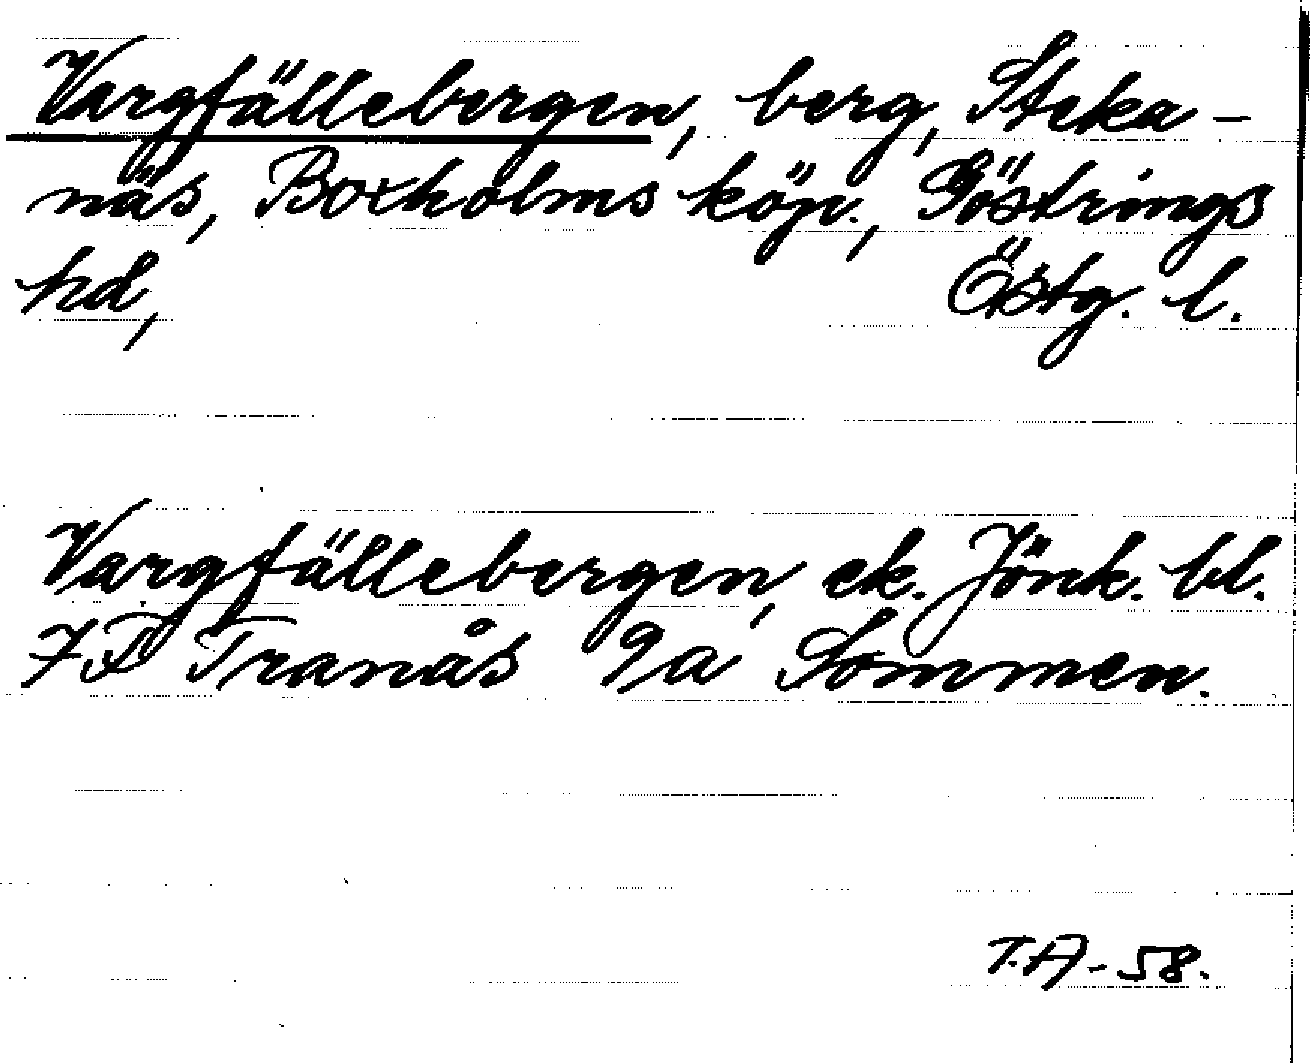 Vargfällebergen, berg, Steka-
näs, Boxholms köp., Göstrings
hd, Östg. l.
Vargfällebergen, ek. Jönk. bl.
7F Tranås 9a Sommen.
T.A-58.